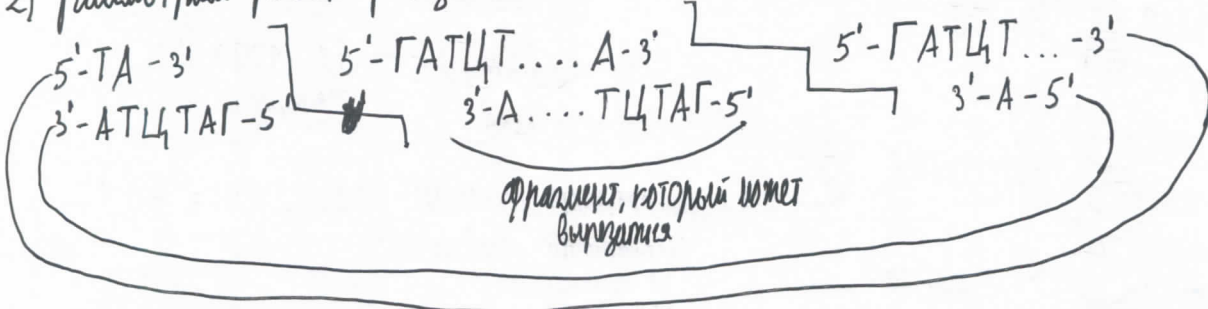 2)
5'-ТА-3' 5'-ГАТЦТ....А-3' 5'-ГАТЦТ...-3'
3'-АТЦТАГ-5' 3'-А....ТЦТАГ-5' 3'-А-5'
фрагмент, который может
вырезаться